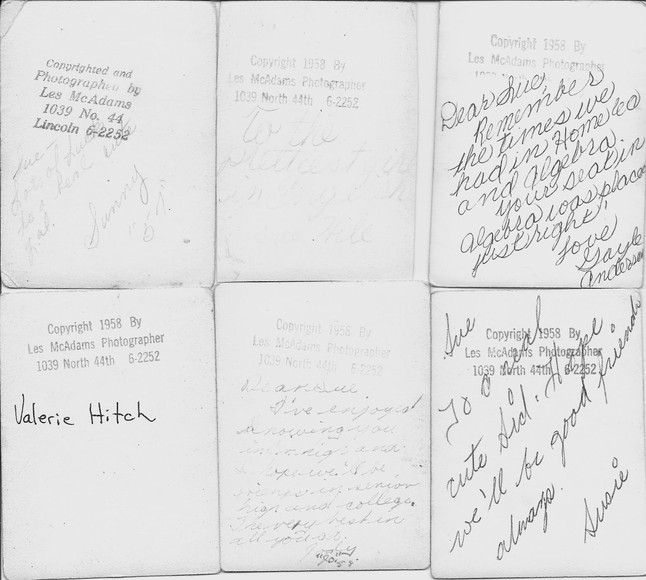 Copyrighted and
Photographed by
Les McAdams
1039 No. 44
Lincoln 6-2252
Sue
Lots of luck
to a real
gal.
Sunny
Copyright 1958 By
Les McAdams Photographer
1039 North 44th 6-2252
To the
in
Copyright 1958 By
Les McAdams Photographer
Dear Sue,
Remember
the times we
had in Home Ec
and Algebra.
your seat in
Algebra was placed
just right!
Love
Gayle
Anderson
Copyright 1958 By
Les McAdams Photographer
1039 North 44th 6-2252
Valerie Hitch
Copyright 1958 By
Les McAdams Photographer
1039 North 44th 6-2252
Dear Sue
I've enjoyed
knowing you
in jr. high and
hope we'll be
friends in senior
high and college.
The very best in
all you do.
Copyright 1958 By
Les McAdams Photographer
1039 North 44th 6-2252
Sue
To a real
cute kid. Hope
we'll be good friends
always.
Susie